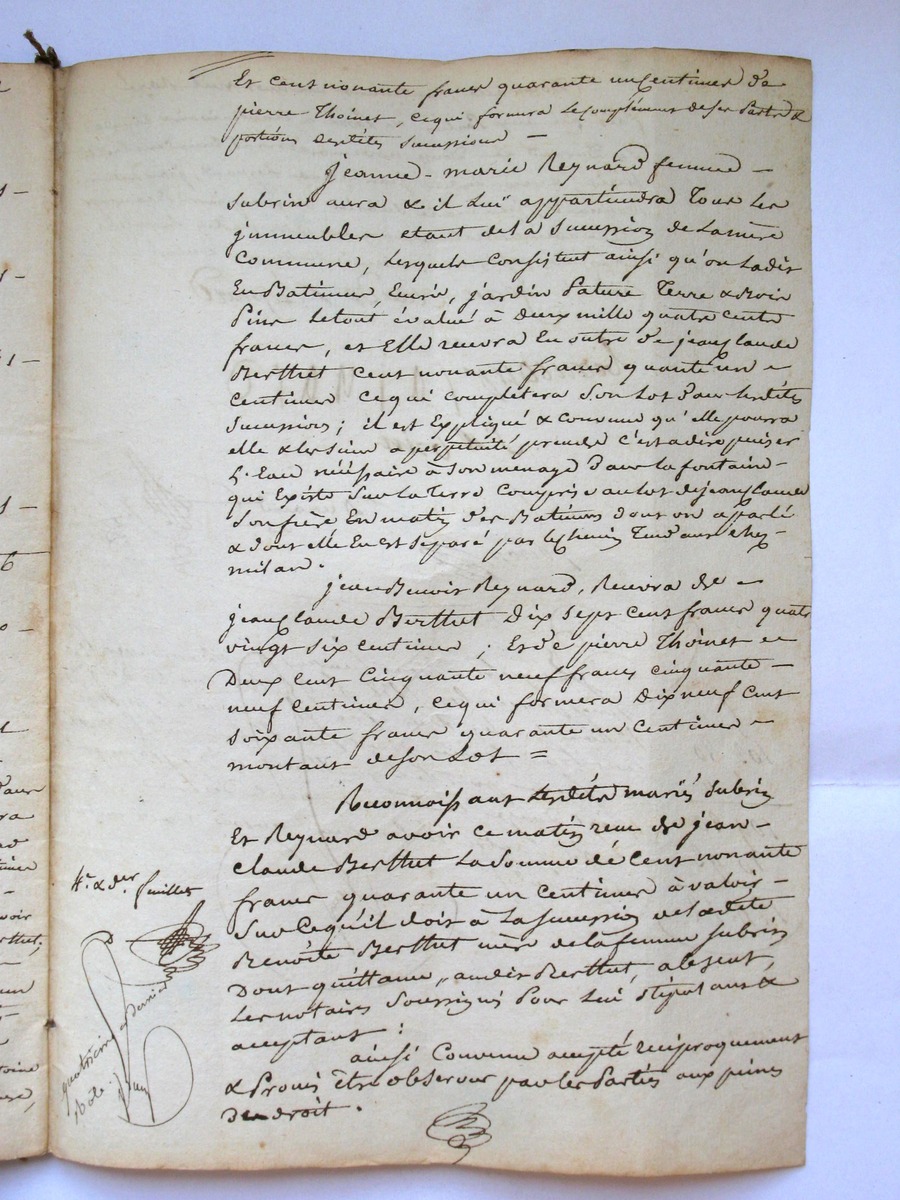 Et cent nonante francs quarante un Centimes de
pierre Thoinet, cequi formera le Complément de ses Parts &
portions desdites sucessions —
jeanne-marie Reynard femme —
Subrin aura & il lui appartiendra Tous les
jmmeubles etant de la Sucession de la mère
Commune, lesquels Consistent ainsi qu'on la dit
En Batimens, Curie, jardin Pature Terre & Bois
Pins le tout évalué à Deux mille quatre cents
francs, et Elle recevra En outre de jean claude
Berthet Cent nonante francs quarante un
Centimes cequi completera Son Lot Dans lesdites
Sucessions; il est Expliqué & convenu qu'elle pourra
elle & les siens a perpétuité prendre c'est adire puiser
L'Eau nécessaire à Son menage Dans la fontaine
qui Existe Sur la Terre Comprise au lot de jean claude
Son frère En matin des Batimens dont on a parlé
& dont elle En est separé par le chemin Tend aux chez
milan.
jean Benoit Reynard, Recevra de
jean claude Berthet Dix Sept cent francs quatre
vingt six centimes; Et de pierre Thoinet
Deux cent Cinquante neuf francs cinquante —
neuf Centimes, cequi formera Dix neuf cent
soixante francs quarante un centimes
montant de son Lot =
Reconnoissant lesdits mariés Subrin
Et Reynard avoir ce matin recu de jean —
claude Berthet La Somme de Cent nonante
francs quarante un Centimes à valoir —
Sur Cequ'il doit à La Sucession de ladite
Benoite Berthet mère de la femme Subrin
Dont quittance, audit Berthet, absent,
Les notaires Soussignés Pour Lui stipulans &
acceptant:
ainsi Convenu accepté réciproquement
& Promis être observé par les Parties aux peines
De droit.
4e. & der. feuillet
quatrieme & dernier
Role.